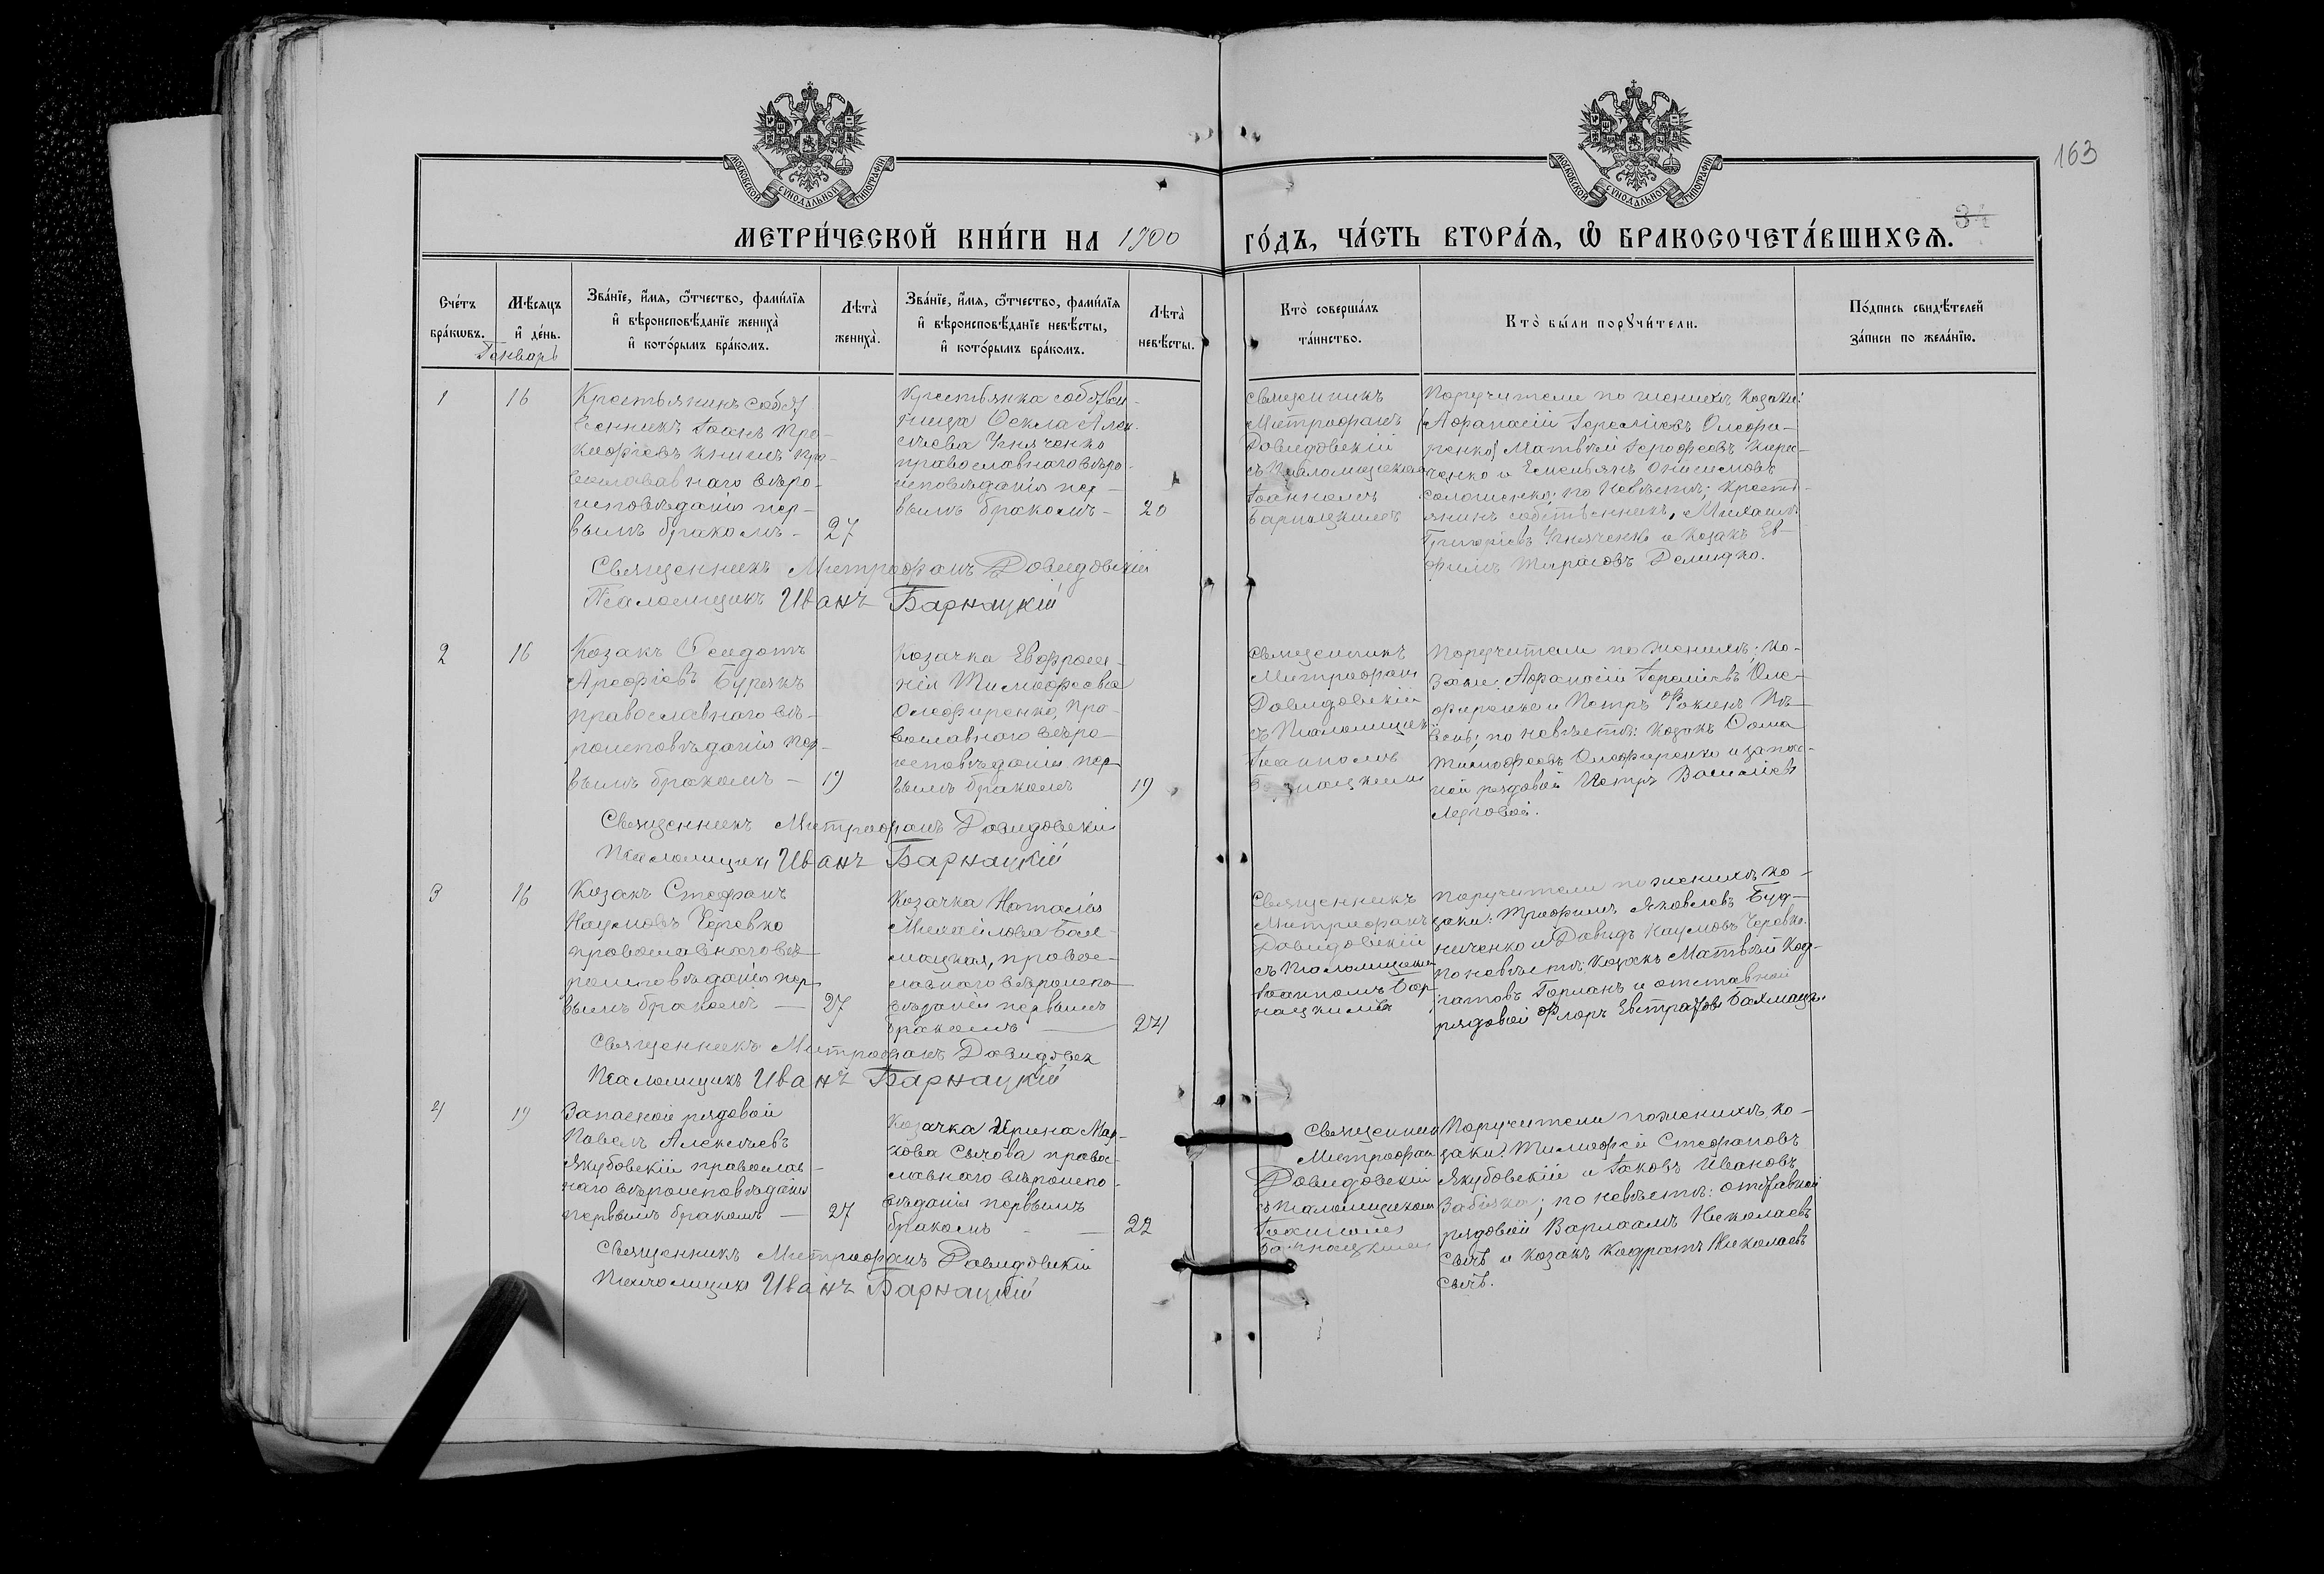 163
МОСКОВСКОЙ СѴНОДАЛЬНОЙ ТИПОГРАФІИ
МОСКОВСКОЙ СѴНОДАЛЬНОЙ ТИПОГРАФІИ
34
МЕТРИ́ЧЕСКОЙ КНИ́ГИ НА 1900
ГО́ДЪ, ЧА́СТЬ ВТОРА́Я, Ѡ҆ БРАКОСОЧЕТА́ВШИХСЯ.
Счетъ
браковъ.
Мѣсяцъ
и день.
Генварь
Званіе, имя, отчество, фамилія
и вѣроисповѣданіе жениха
и которымъ бракомъ.
Лѣта
жениха.
Званіе, имя, отчество, фамилія
и вѣроисповѣданіе невѣсты,
и которымъ бракомъ.
Лѣта
невѣсты.
Кто совершалъ
таинство.
Кто были поручители.
Подпись свидѣтелей
записи по желанію.
1
16
Крестьянинъ собст
венникъ Іоанъ Про-
кофіевъ Книшъ пра-
вославнаго вѣро-
исповѣданія пер-
вымъ бракомъ -
27
Крестьянка собствен-
ница Ѳекла Алек-
сѣева
православнаго вѣро-
исповѣданія пер-
вымъ бракомъ -
20
Священникъ
Митрофанъ
Давидовскій
съ Псаломщикомъ
Іоанномъ
Барнацкимъ
Поручители по женихѣ козаки:
Афанасій Іереміевъ Олефи-
ренко Матвѣй Герофеевъ Кири-
ченко и Емельянъ Онисимовъ
Солошенко; по Невѣстѣ: крестъ-
янинъ собственникъ, Михаилъ
Григоріевъ и козакъ Ев-
фимъ Тарасовъ Демидко.
Священникъ Митрофанъ Давидовскій
Псаломщикъ Иванъ Барнацкій
2
16
Козакъ Ѳеодотъ
Арефіевъ Бурякъ
православнаго вѣ-
роисповѣданія пер-
вымъ бракомъ -
19
Козачка Евфроси-
нія Тимофеева
Олефиренко, пра-
вославнаго вѣро-
исповѣданія пер-
вымъ бракомъ
19
Священникъ
Митрофанъ
Давидовскій
съ Псаломщикомъ
Іоанномъ
Барнацкимъ
Поручители по женихѣ: ко-
заки: Афанасій Іереміевъ Оле-
фиренко и Петръ Фокинъ Пѣ-
вень; по невѣстѣ: козакъ Ѳома
Тимофеевъ Олефиренко и запас-
ной рядовой Петръ Василіевъ
Священникъ Митрофанъ Давидовскій
Псаломщикъ Иванъ Барнацкій
3
16
Козакъ Стефанъ
Наумовъ Черевко
православнаго вѣ-
роисповѣданія пер-
вымъ бракомъ -
27
Козачка Наталія
Михайлова Бах-
мацкая, правос-
лавнаго вѣроиспо-
вѣданія первымъ
бракомъ -
24
Священникъ
Митрофанъ
Давидовскій
съ Псаломщикомъ
Іоанномъ Бар-
нацкимъ
Поручители по женихѣ ко-
заки: Трофимъ Яковлевъ Буд-
ниченко и Давидъ Наумовъ Черевко.
По невѣстѣ: Козакъ Матвѣй Код-
ратовъ Горланъ и отставной
рядовой Флоръ Евстратовъ Бахмацк.
Священникъ Митрофанъ Давидовск
Псаломщикъ Иванъ Барнацкій
4
19
Запасной рядовой
Павелъ Алексѣевъ
Якубовскій православ-
наго вѣроисповѣданія
первымъ бракомъ -
27
Козачка Ирина Мар-
кова Сычова правос-
лавнаго вѣроиспо-
вѣданія первымъ
бракомъ -
22
Священникъ
Митрофан
Давидовскій
съ Псаломщикомъ
Іоанномъ
Барнацкимъ
Поручители по женихѣ, ко-
заки: Тимофей Стефановъ
Якубовскій и Іаковъ Ивановъ
Забіяка; по невѣстѣ: отставной
рядовой Варлаамъ Николаевъ
Сычъ и козакъ Кодратъ Николаевъ
Сычъ.
Священникъ Митрофанъ Давидовскій
Псаломщикъ Иванъ Барнацкій